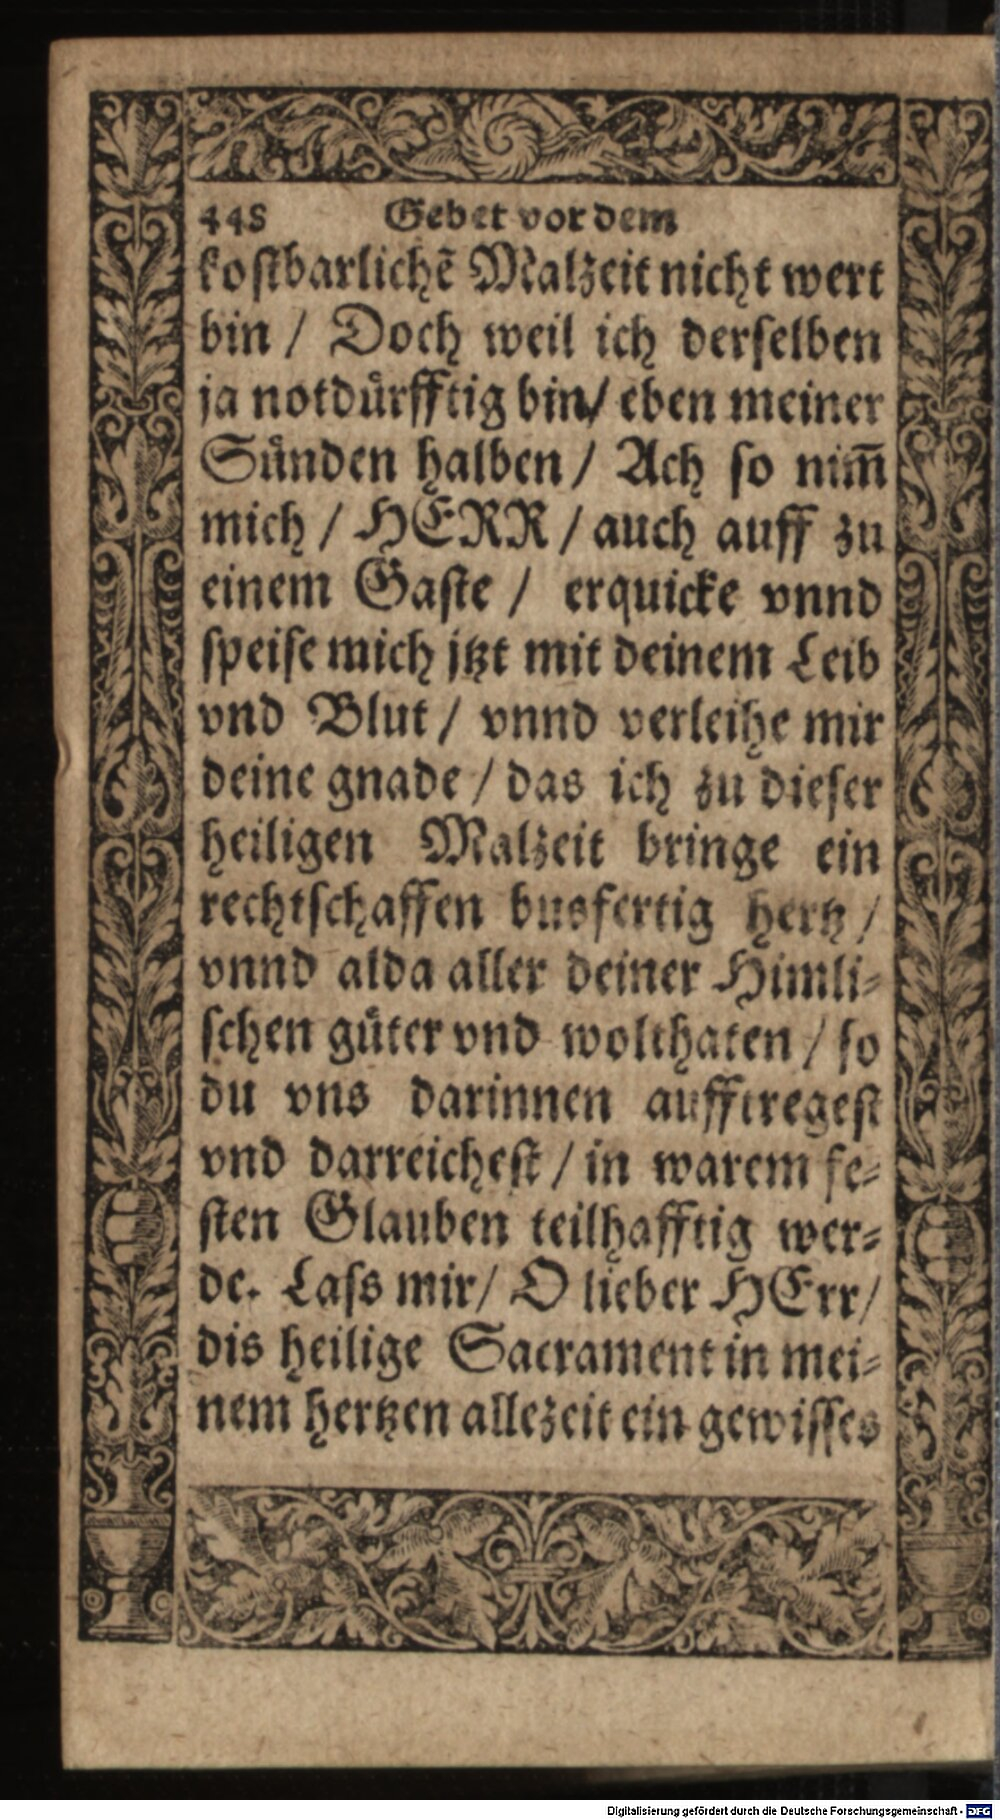 448 Gebet vor dem
koſtbarlichē Malzeit nicht wert
bin / Doch weil ich derſelben
ja notduͤrfftig bin/ eben meiner
Suͤnden halben / Ach ſo nim̄
mich / HERR / auch auff zu
einem Gaſte / erquicke vnnd
ſpeiſe mich jtzt mit deinem Leib
vnd Blut / vnnd verleihe mir
deine gnade / das ich zu dieſer
heiligen Malzeit bringe ein
rechtſchaffen busfertig hertz /
vnnd alda aller deiner Himli⸗
ſchen guͤter vnd wolthaten / ſo
du vns darinnen aufftregeſt
vnd darreicheſt / in warem fe⸗
ſten Glauben teilhafftig wer⸗
de. Laſs mir/ O lieber HErr/
dis heilige Sacrament in mei⸗
nem hertzen allezeit ein gewiſſes
Digitalisierung gefördert durch die Deutsche Forschungsgemeinschaft - DFG